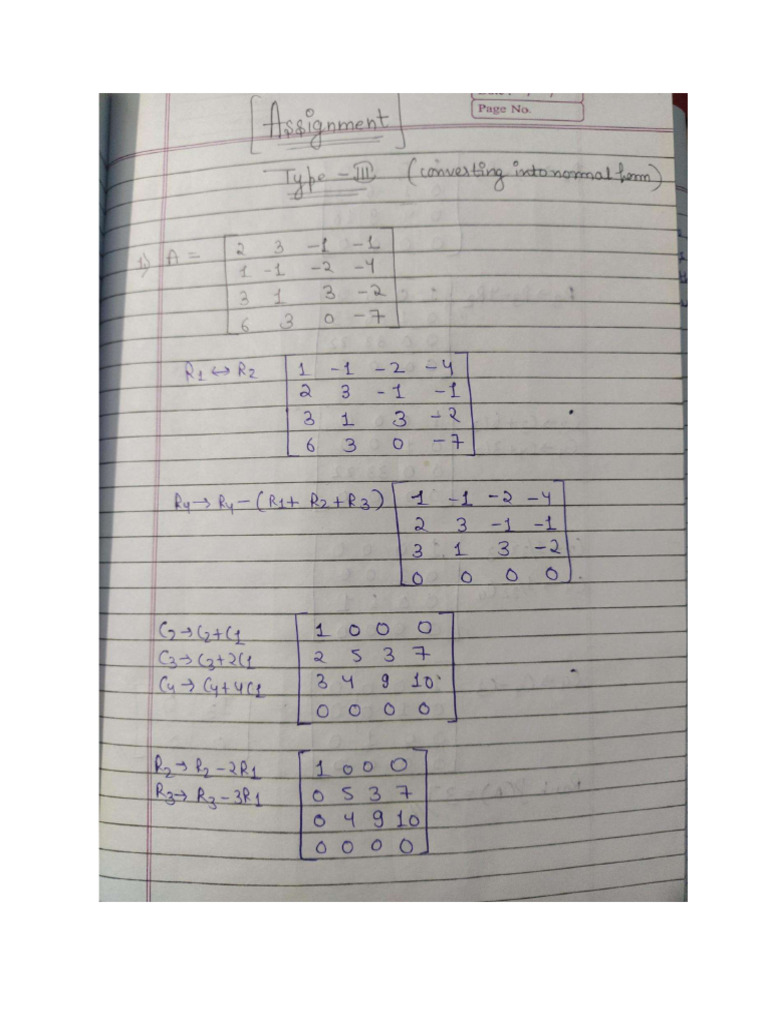 Page No.
[Assignment]
Type - III (converting into normal form)
1) A = [2 3 -1 -1
1 -1 -2 -4
3 1 3 -2
6 3 0 -7]
R1 ↔ R2 [1 -1 -2 -4
2 3 -1 -1
3 1 3 -2
6 3 0 -7]
R4 → R4 - (R1 + R2 + R3) [1 -1 -2 -4
2 3 -1 -1
3 1 3 -2
0 0 0 0]
C2 → C2 + C1 [1 0 0 0
C3 → C3 + 2C1 2 5 3 7
C4 → C4 + 4C1 3 4 9 10
0 0 0 0]
R2 → R2 - 2R1 [1 0 0 0
R3 → R3 - 3R1 0 5 3 7
0 4 9 10
0 0 0 0]